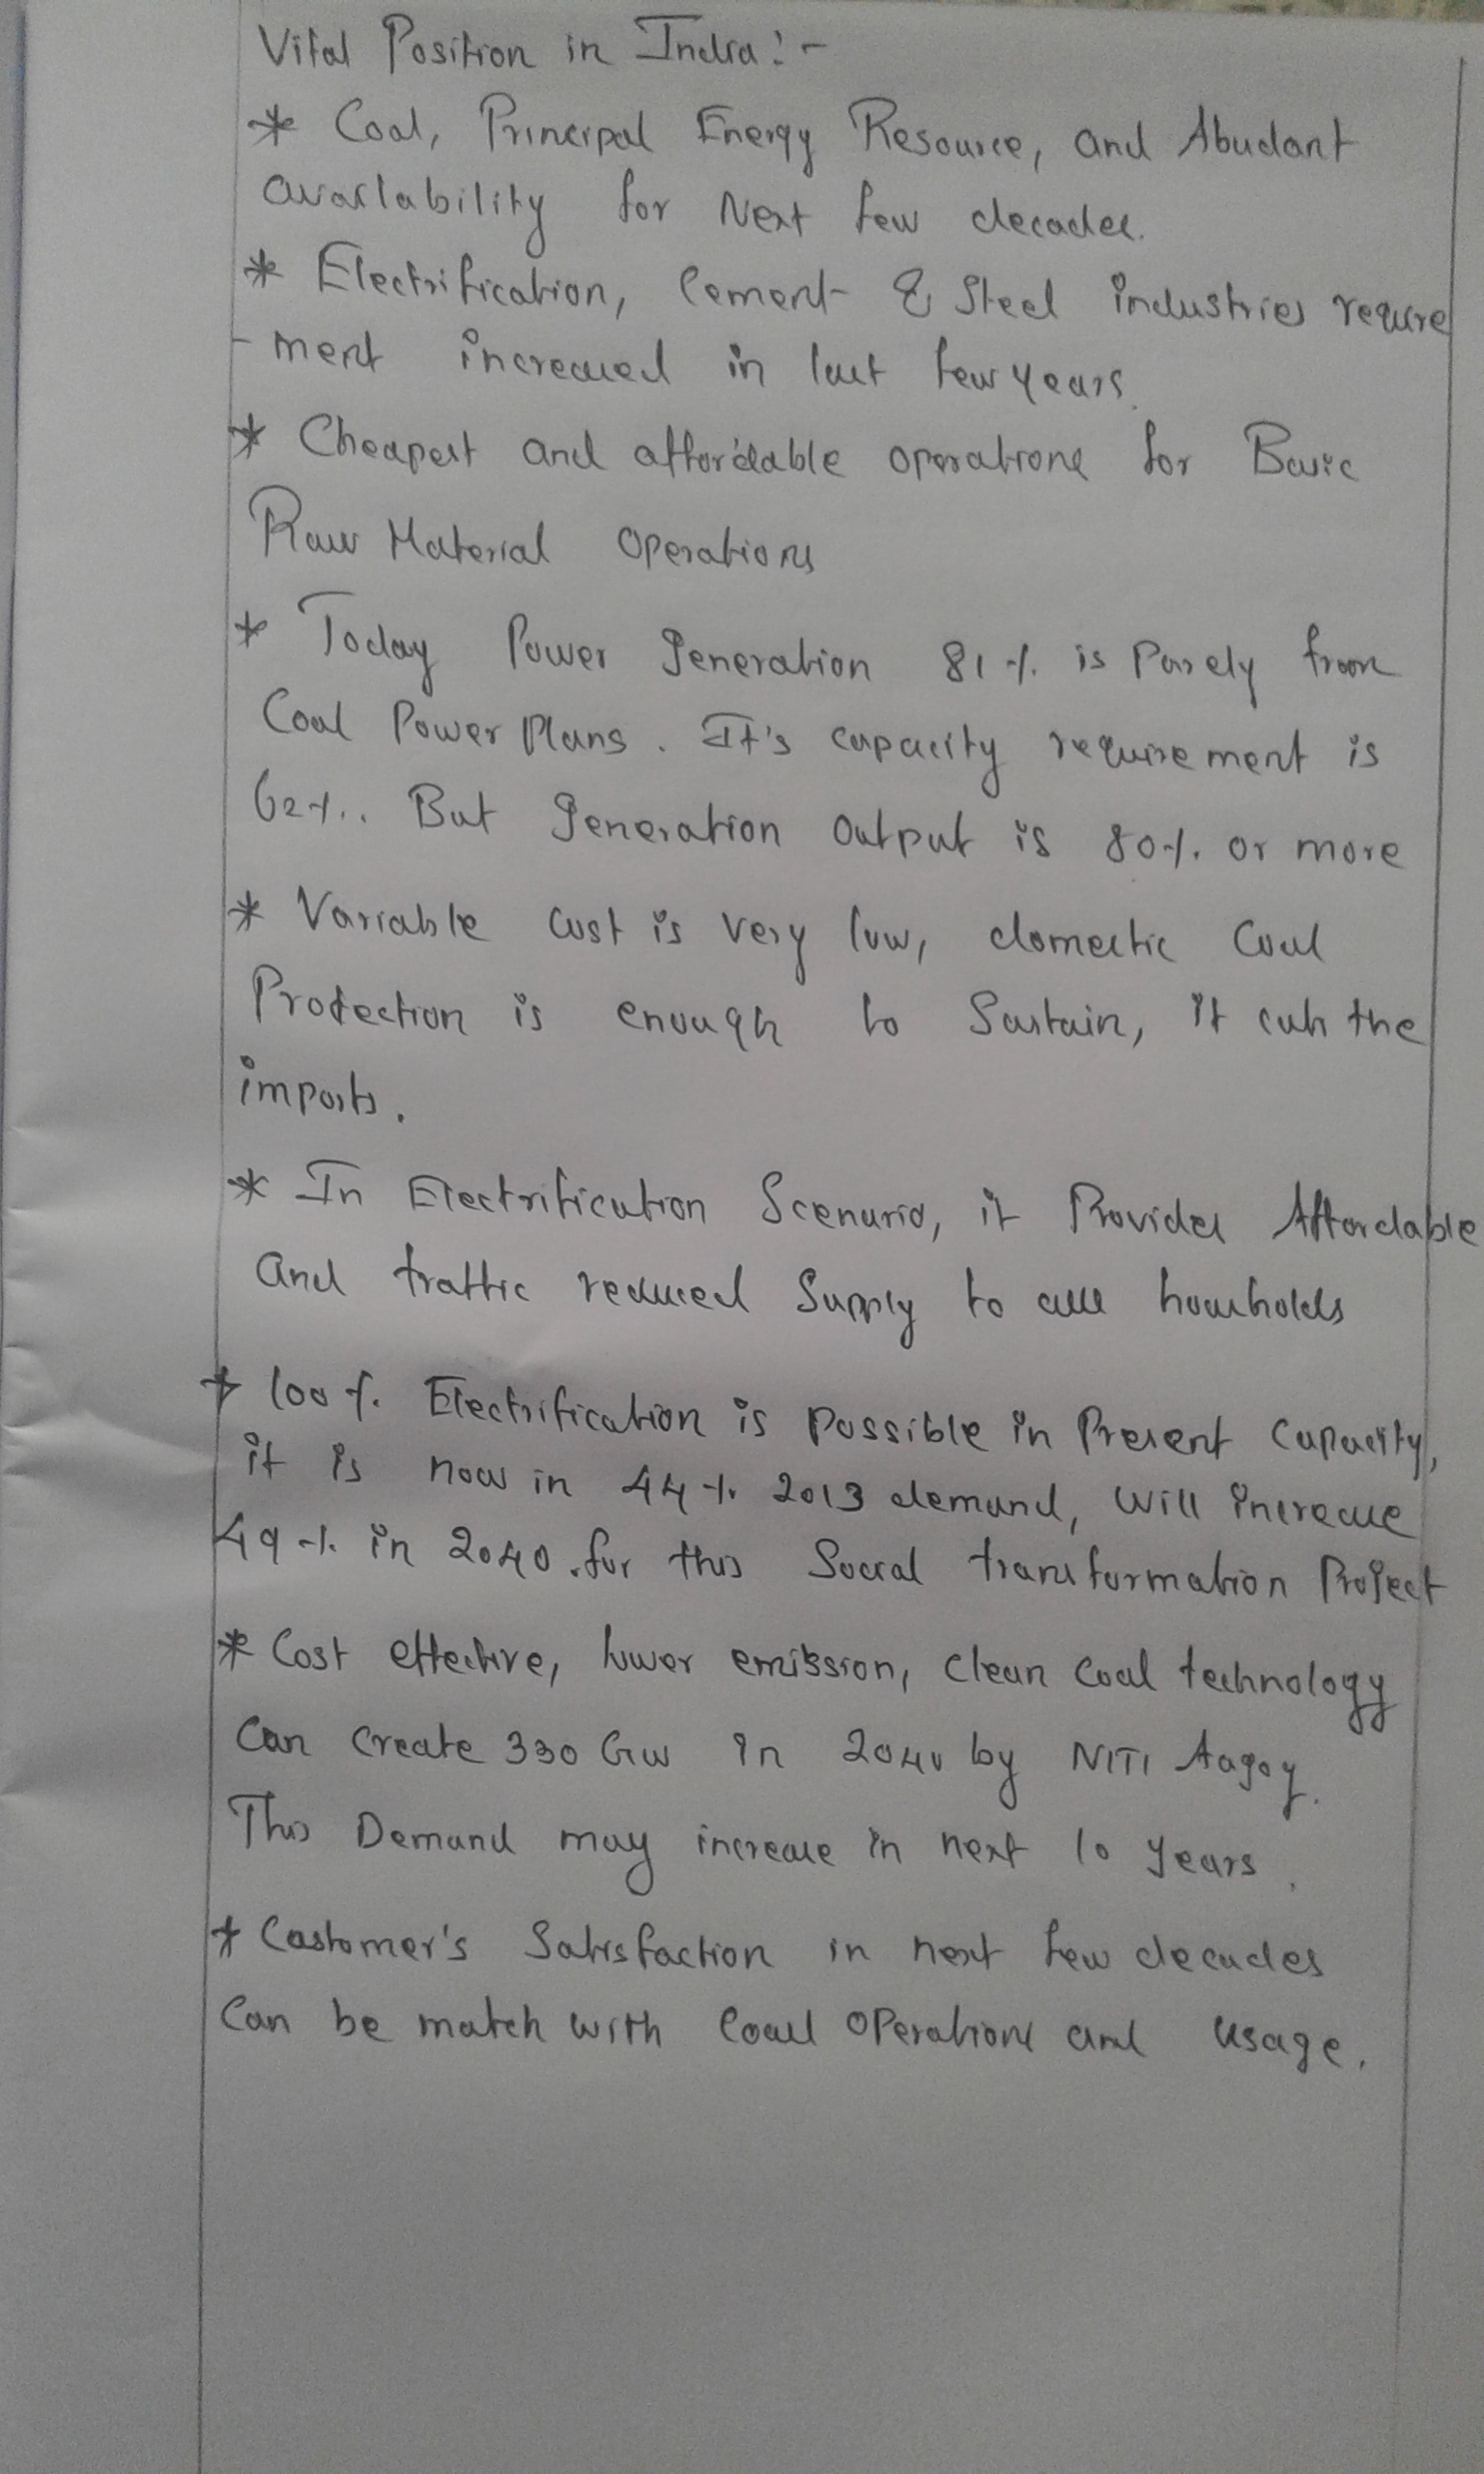 Vital Position in India:-
* Coal, Principal Energy Resource, and Abudant
availability for Next few decades.
* Electrification, Cement & Steel industries require
-ment increased in last few years.
* Cheapest and affordable operations for Basic
Raw Material Operations
* Today Power generation 81%. is Purely from
Coal Power Plans. It's capacity requirement is
62%.. But generation Output is 80%. or more
* Variable cost is very low, domestic Coal
Protection is enough to Sustain, it cuts the
imports.
* In Electrification Scenario, it Provides Affordable
and traffic reduced Supply to all housholds
* 100%. Electrification is possible in Present Capacity,
it is now in 44%. 2013 demand, will increase
49%. in 2040. for this Social transformation Project
* Cost effective, lower emission, clean coal technology
Can create 330 GW in 2040 by NITI Aagoy.
This Demand may increase in next 10 years.
* Customer's Satisfaction in next few decades
Can be match with Coal Operations and usage.